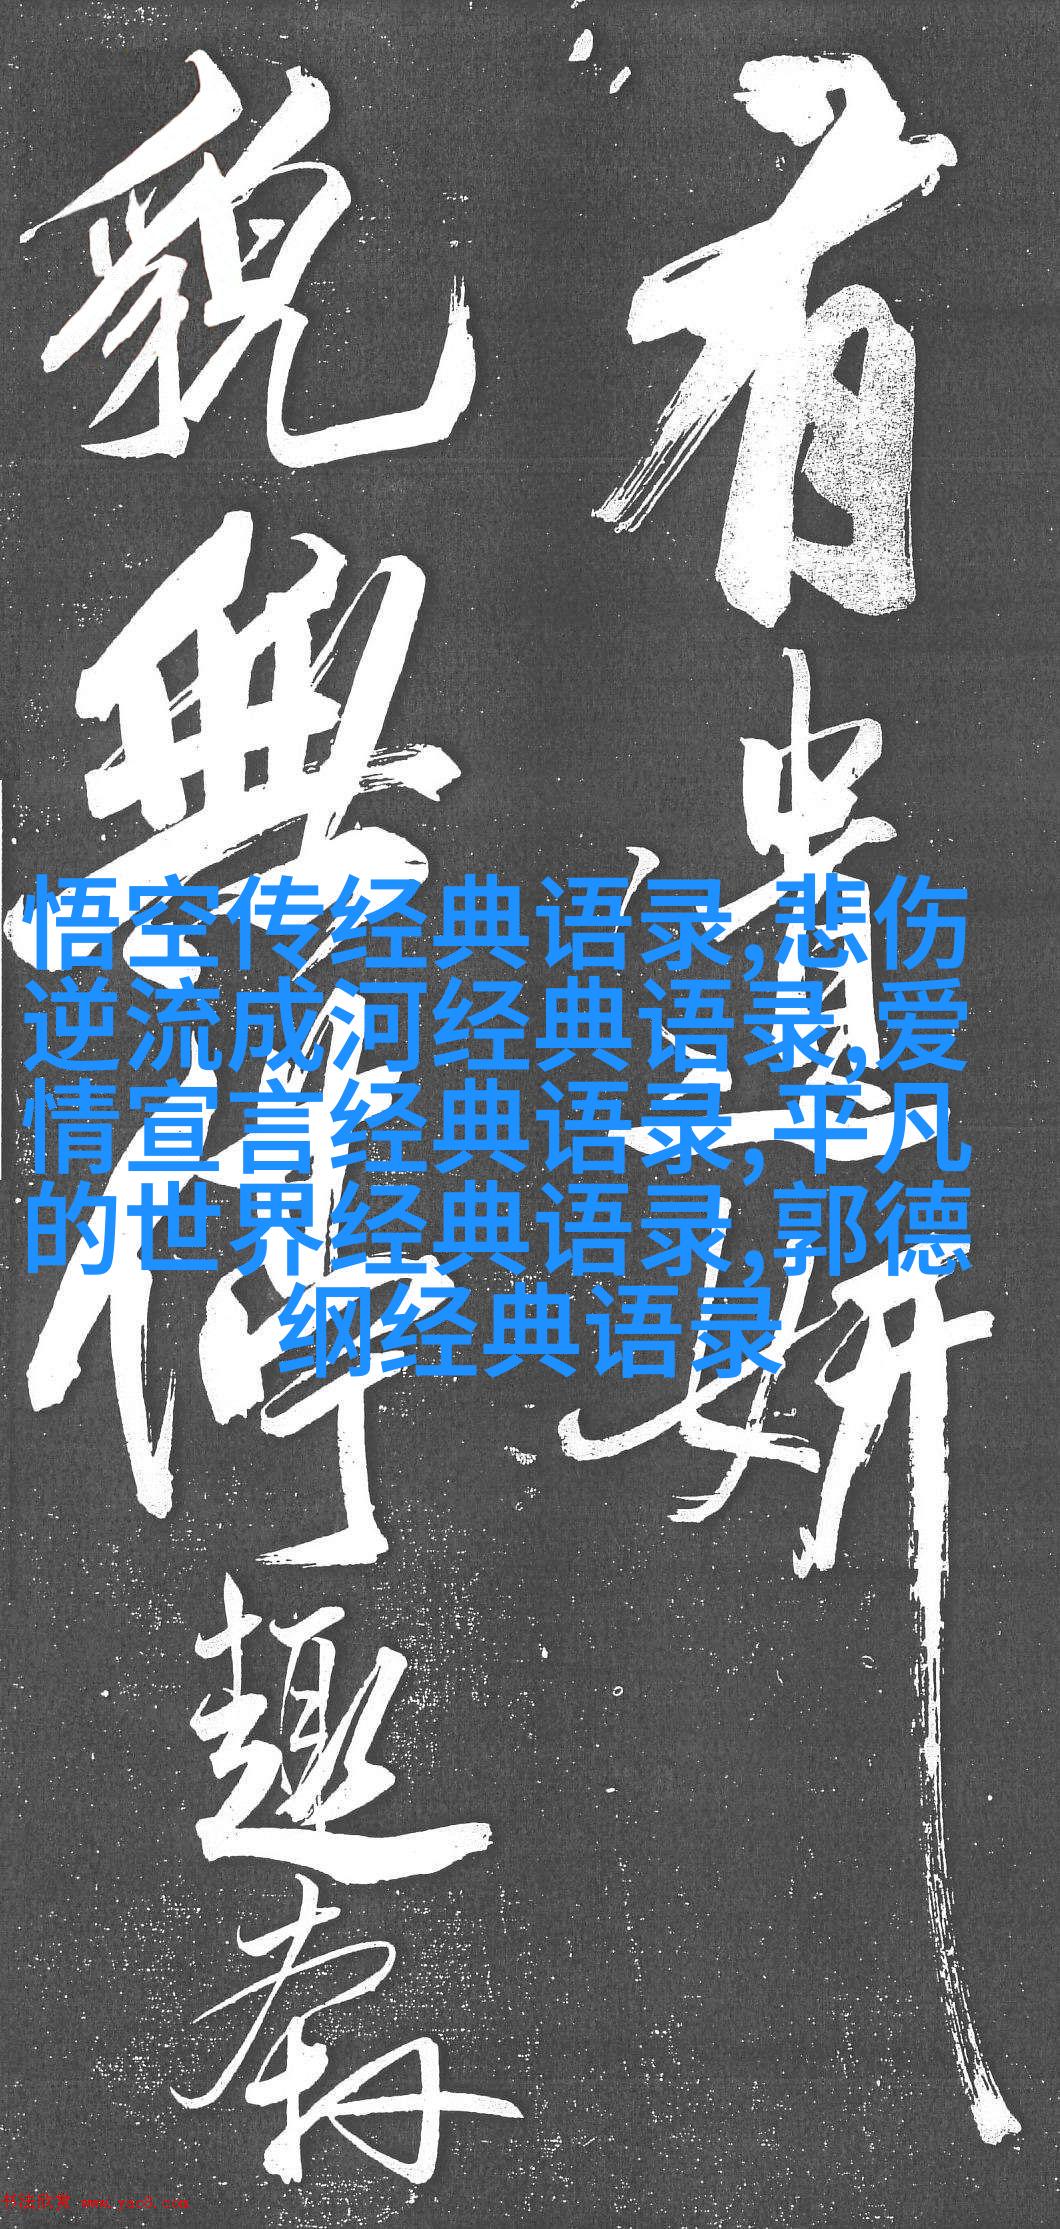 有遺妍
貌無停趣
悟空传经典语录,悲伤
逆流成河经典语录,爱
情宣言经典语录,平凡
的世界经典语录,郭德
纲经典语录